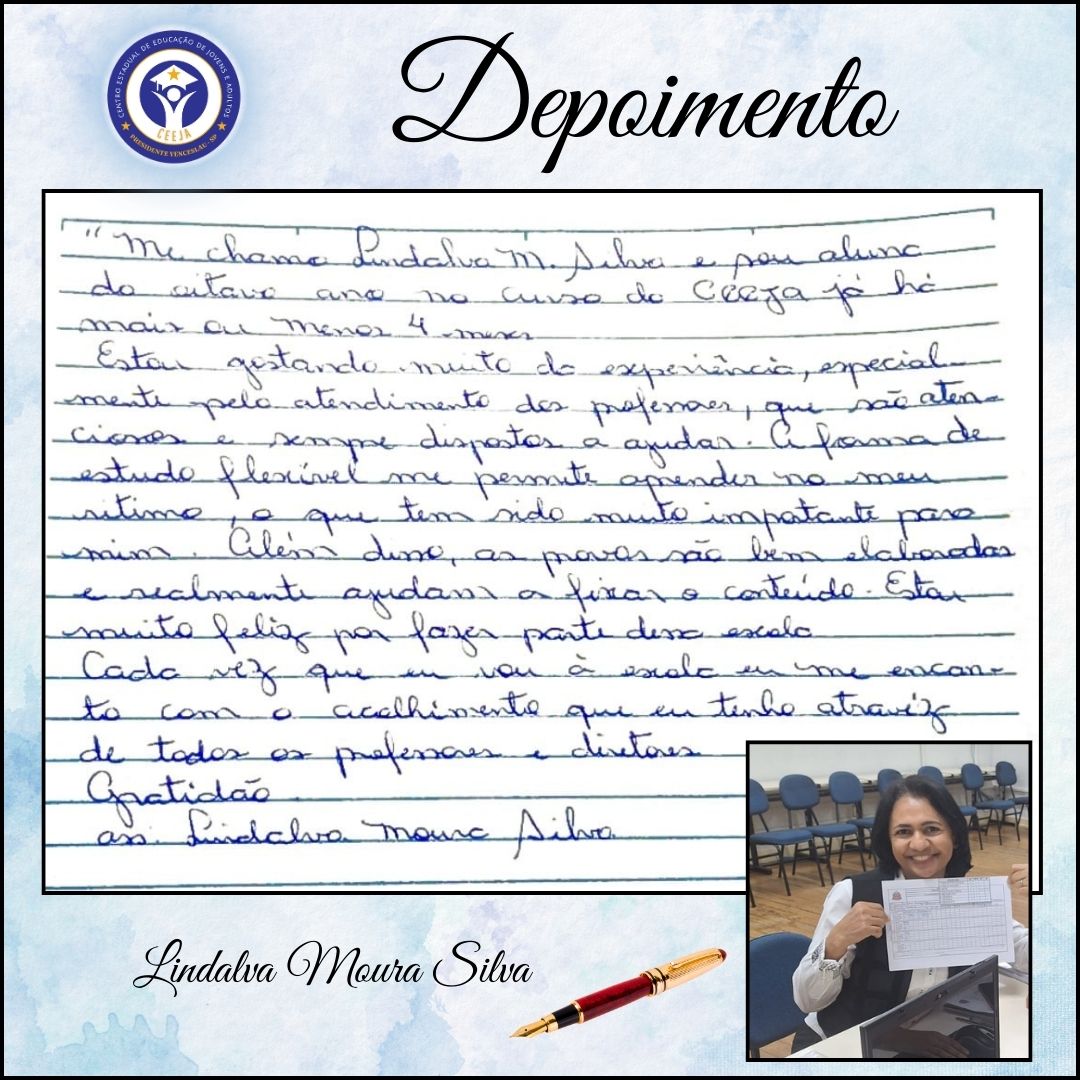 CENTRO ESTADUAL DE EDUCAÇÃO DE JOVENS E ADULTOS
CEEJA
PRESIDENTE VENCESLAU - SP
Depoimento
"Me chamo Lindalva M. Silva e sou aluna
do oitavo ano no curso do CEEJA já há
mais ou menos 4 meses
Estou gostando muito da experiência, especial-
mente pelo atendimento dos professores, que são aten-
ciosos e sempre dispostos a ajudar. A forma de
estudo flexível me permite aprender no meu
ritimo, o que tem sido muito importante para
mim. Além disso, as provas são bem elaboradas
e realmente ajudam a fixar o conteúdo. Estou
muito feliz por fazer parte dessa escola
Cada vez que eu vou à escola eu me encan-
to com o acolhimento que eu tenho atravéz
de todos os professores e diretores
Gratidão
ass. Lindalva Moura Silva
Lindalva Moura Silva